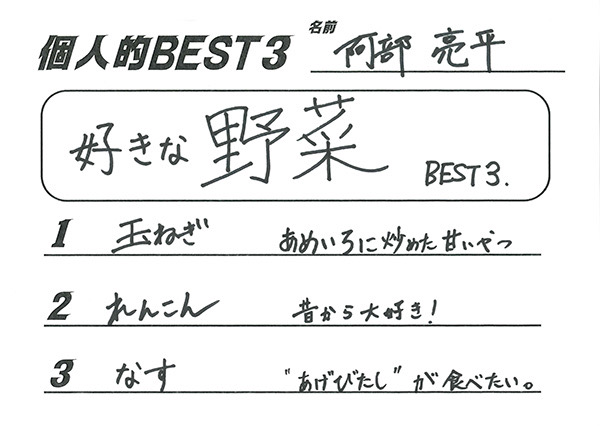 個人的BEST3 名前 阿部 亮平
好きな野菜 BEST3.
1 玉ねぎ あめいろに炒めた甘いやつ
2 れんこん 昔から大好き!
3 なす "あげびたし"が食べたい。